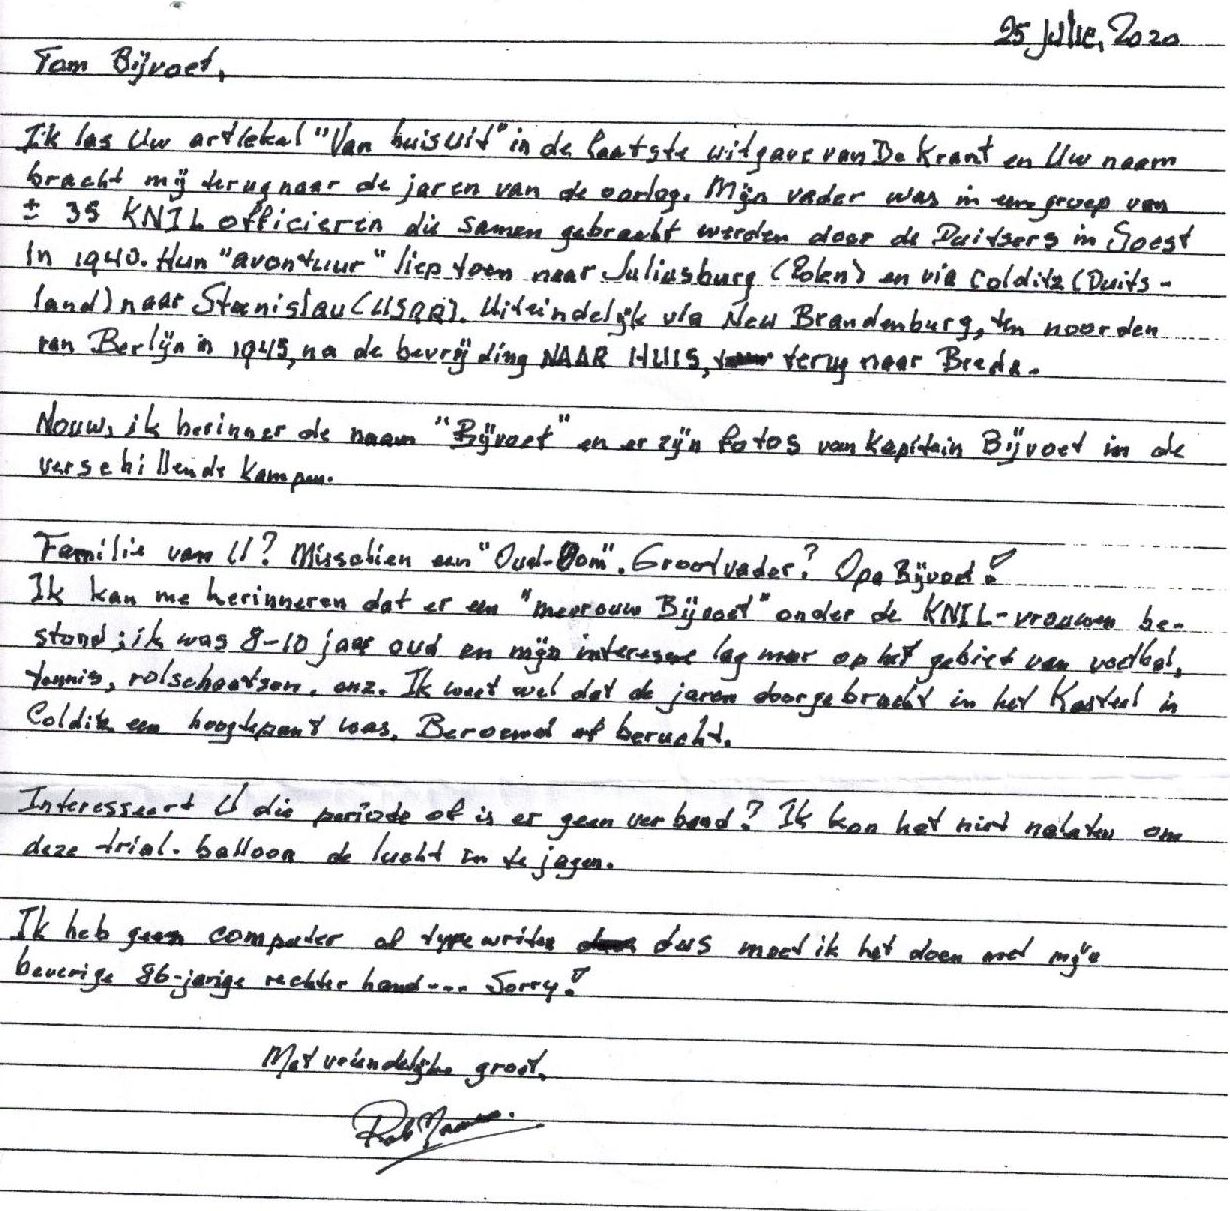 25 Julie, 2020
Tom Bijvoet,
Ik las Uw artiekal "Van huis uit" in de laatste uitgave van De Krant en Uw naam
bracht mij terug naar de jaren van de oorlog. Mijn vader was in een groep van
± 35 KNIL officieren die samen gebracht werden door de Duitsers in Soest
in 1940. Hun "avontuur" liep toen naar Juliusburg (Polen) en via Colditz (Duits-
land) naar Stanislau (USSR). Uiteindelijk via New Brandenburg, ten noorden
van Berlijn in 1945, na de bevrijding NAAR HUIS, terug naar Breda.
Nouw, ik herinner de naam "Bijvoet" en er zijn fotos van Kapitein Bijvoet in de
verschillende kampen.
Familie van U? Misschien een "Oud-Oom". Grootvader? Opa Bijvoet!
Ik kan me herinneren dat er een "mevrouw Bijvoet" onder de KNIL-vrouwen be-
stond; ik was 8-10 jaar oud en mijn interesse lag meer op het gebied van voetbal,
tennis, rolschaatsen, enz. Ik weet wel dat de jaren doorgebracht in het Kasteel in
Colditz een hoogtepunt was. Beroemd of berucht.
Interesseert U die periode of is er geen verband? Ik kon het niet nalaten om
deze trial-balloon de lucht in te jagen.
Ik heb geen computer of typewriter dus moet ik het doen met mijn
beverige 86-jarige rechter hand... Sorry!
Met vriendelijke groet,
Rob